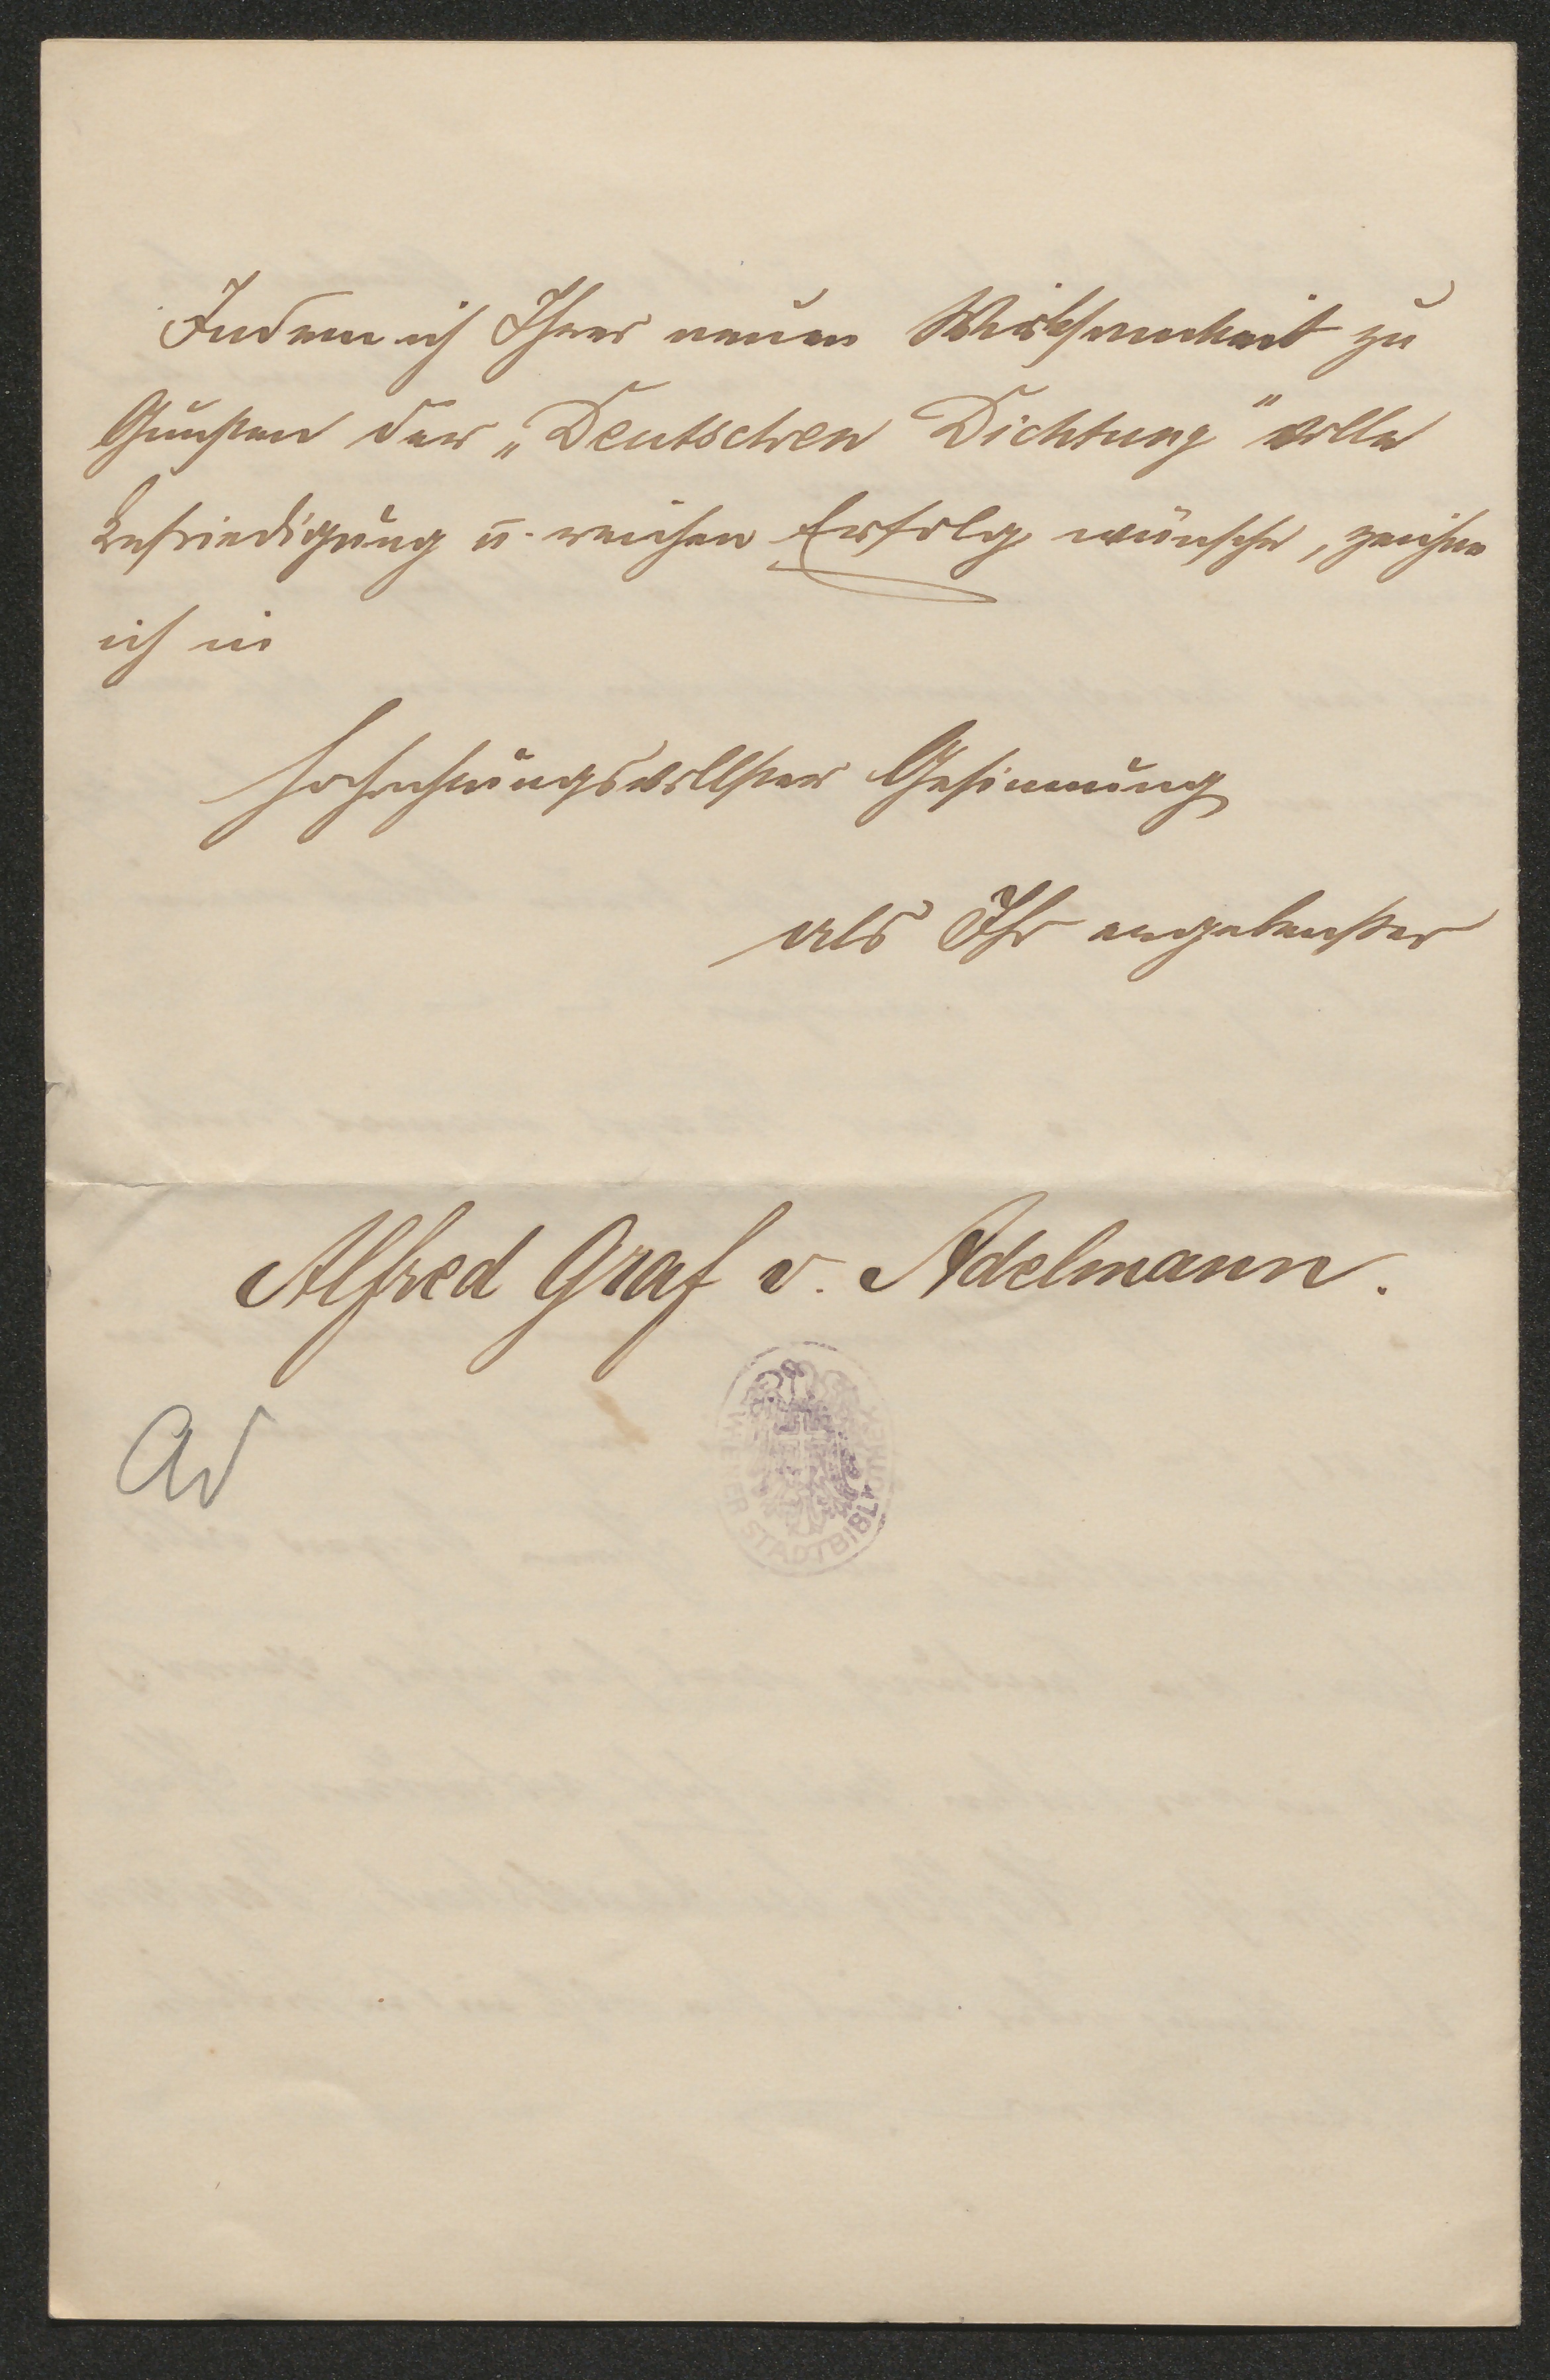 Indem ich Ihrer neuen Wirksamkeit zu
Gunsten der „Deutschen Dichtung" volle
Befriedigung u. reichen Erfolg wünsche, zeichne
ich in
hochachtungsvollster Gesinnung
als Ihr ergebenster
Alfred Graf v. Adelmann.
WIENER STADTBIBLIOTHEK